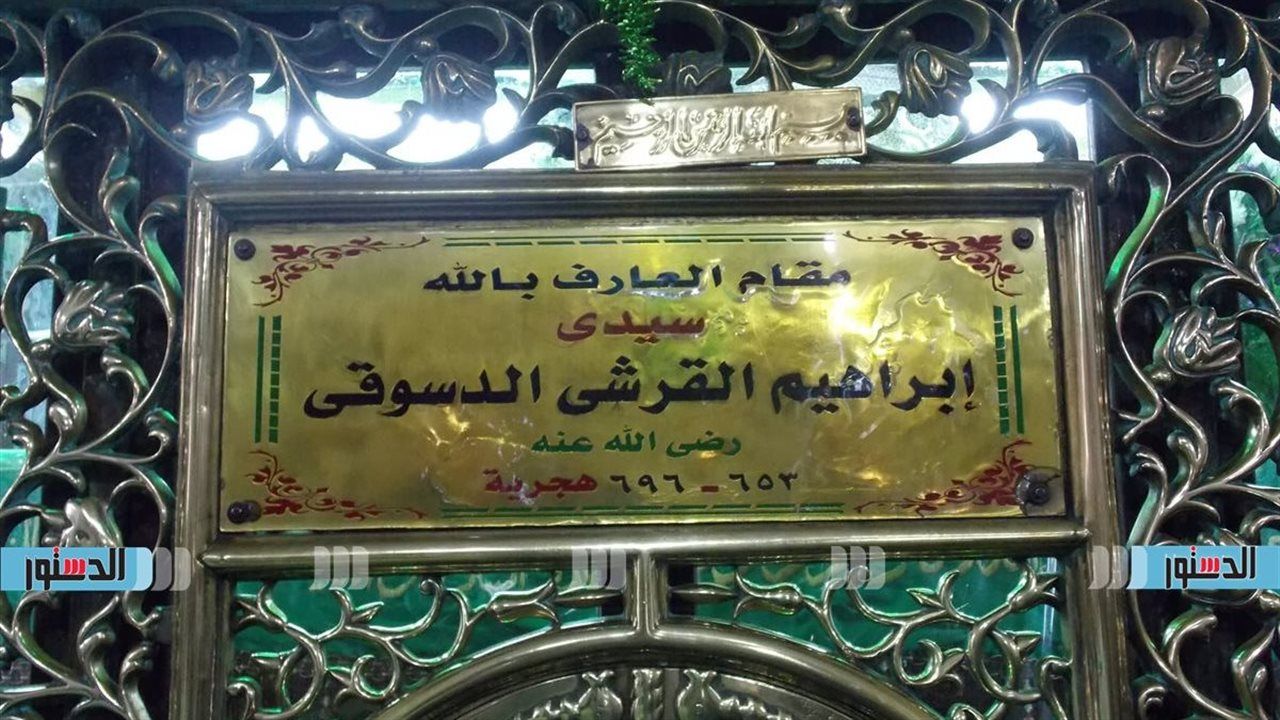 بسم الله الرحمن الرحيم
مقام العارف بالله
سيدى
إبراهيم القرشى الدسوقى
رضى الله عنه
٦٥٣ - ٦٩٦ هجرية
الدستور
الدستور